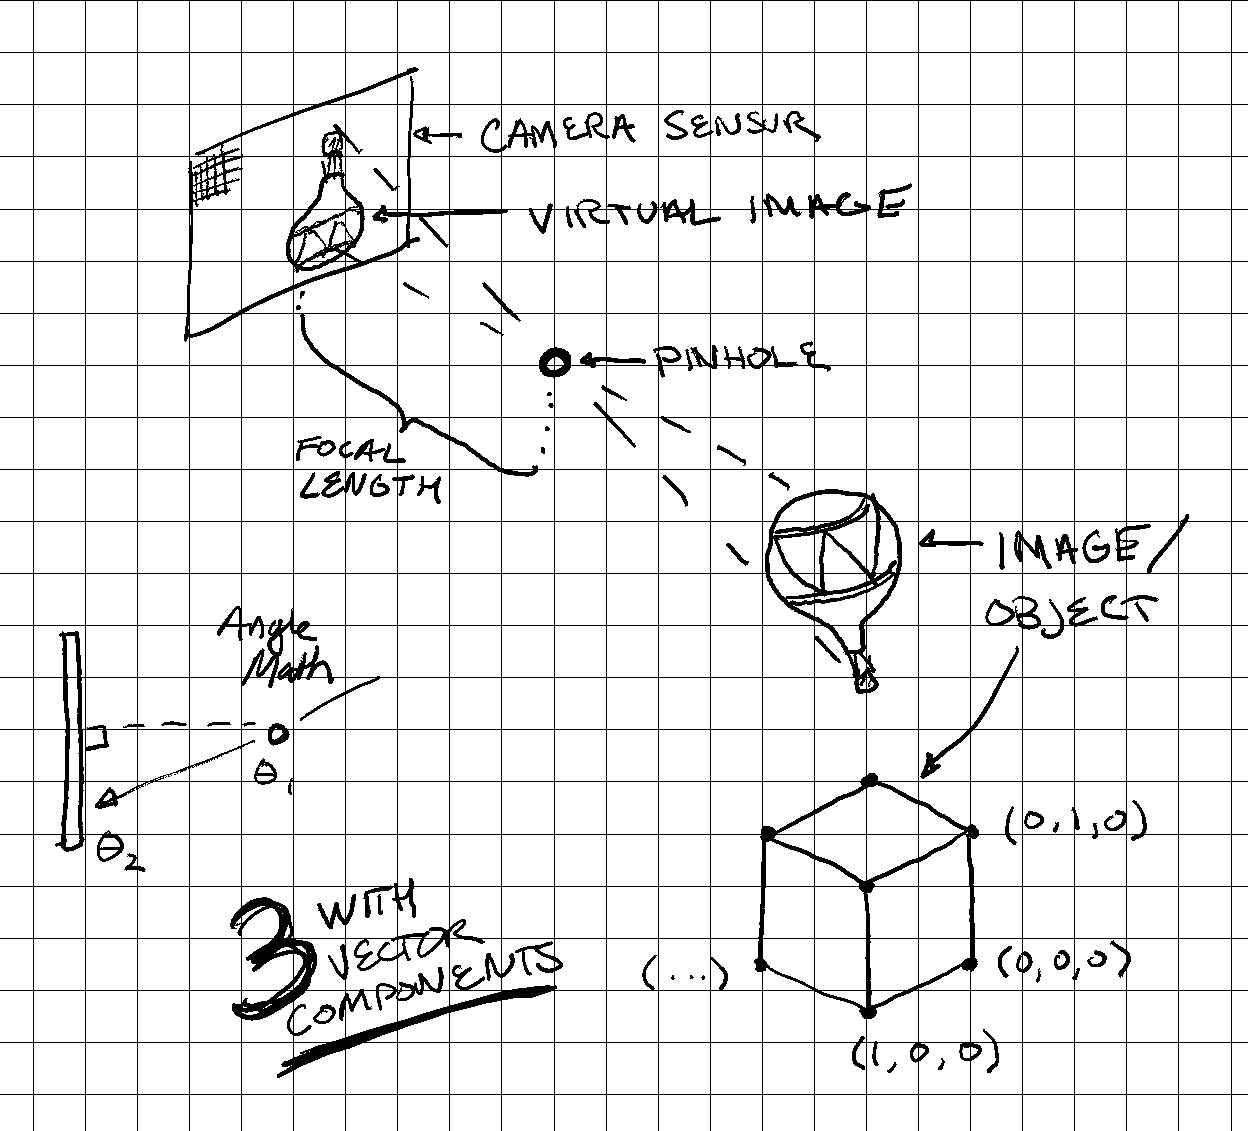 CAMERA SENSUR
VIRTUAL IMAGE
PINHOLE
FOCAL
LENGTH
IMAGE/
OBJECT
Angle
Math
θ₁
θ₂
(0,1,0)
(0,0,0)
(...)
(1,0,0)
3 WITH
VECTOR
COMPONENTS